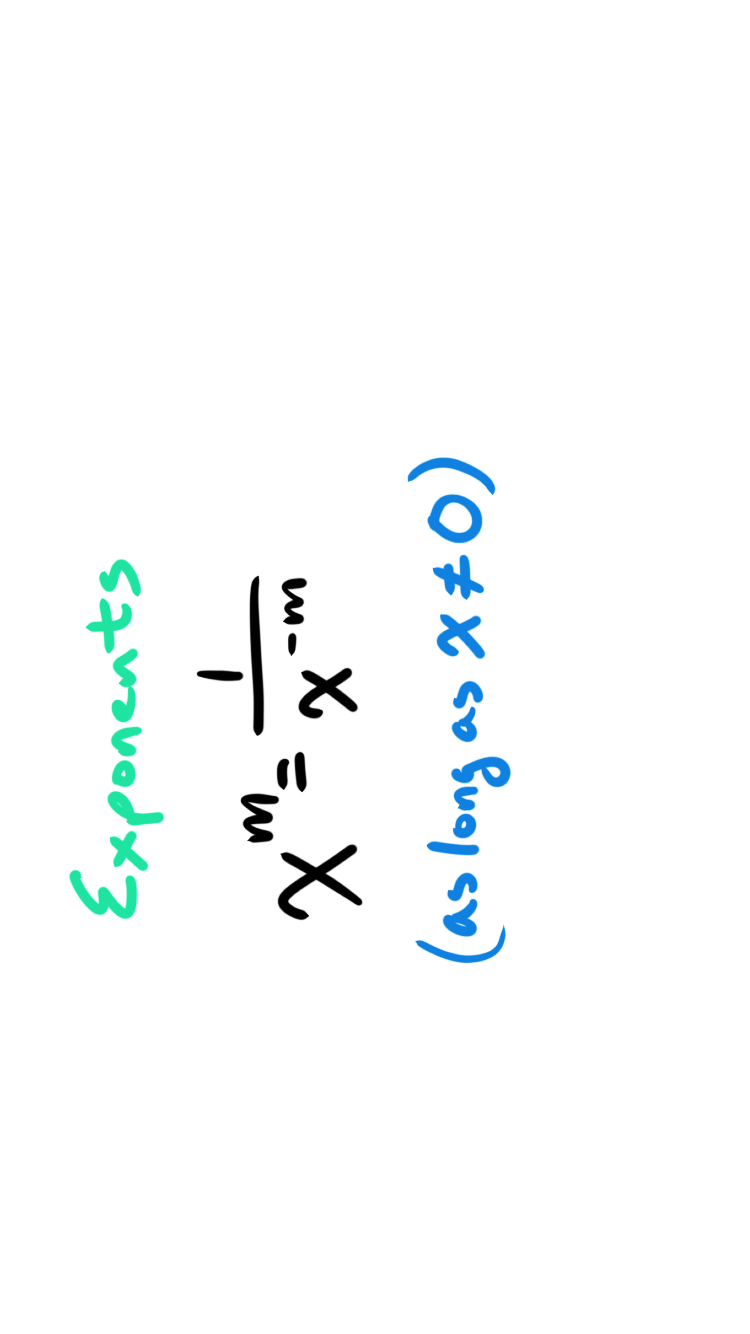 Exponents
x^m = 1/x^-m
(as long as x ≠ 0)